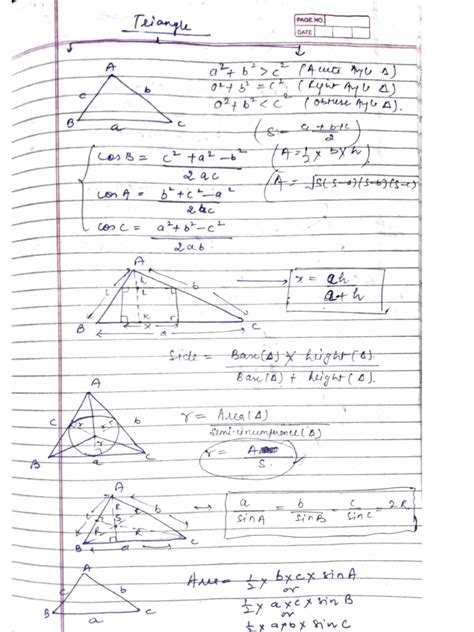 Triangle
PAGE NO.
DATE
a² + b² > c² (Acute Angle Δ)
a² + b² = c² (Right Angle Δ)
a² + b² < c² (Obtuse Angle Δ).
A
c b
B a C
(S = a+b+c / 2)
cosB = c² + a² - b² / 2ac
(A = 1/2 × b × h)
cosA = b² + c² - a² / 2bc
(A = √s(s-a)(s-b)(s-c)
cosC = a² + b² - c² / 2ab
A
h
b
B x C
a
x = ah / a+h
Side = Base(Δ) × height(Δ). / Base(Δ) + height(Δ).
A
c b
r
B a C
r = Area(Δ) / Semi-circumference(Δ)
r = A / S.
A
R
B a C
a / sinA = b / sinB = c / sinC = 2R
A
c b
B a C
Area = 1/2 × b × c × sinA
or
1/2 × a × c × sinB
or
1/2 × a × b × sinC